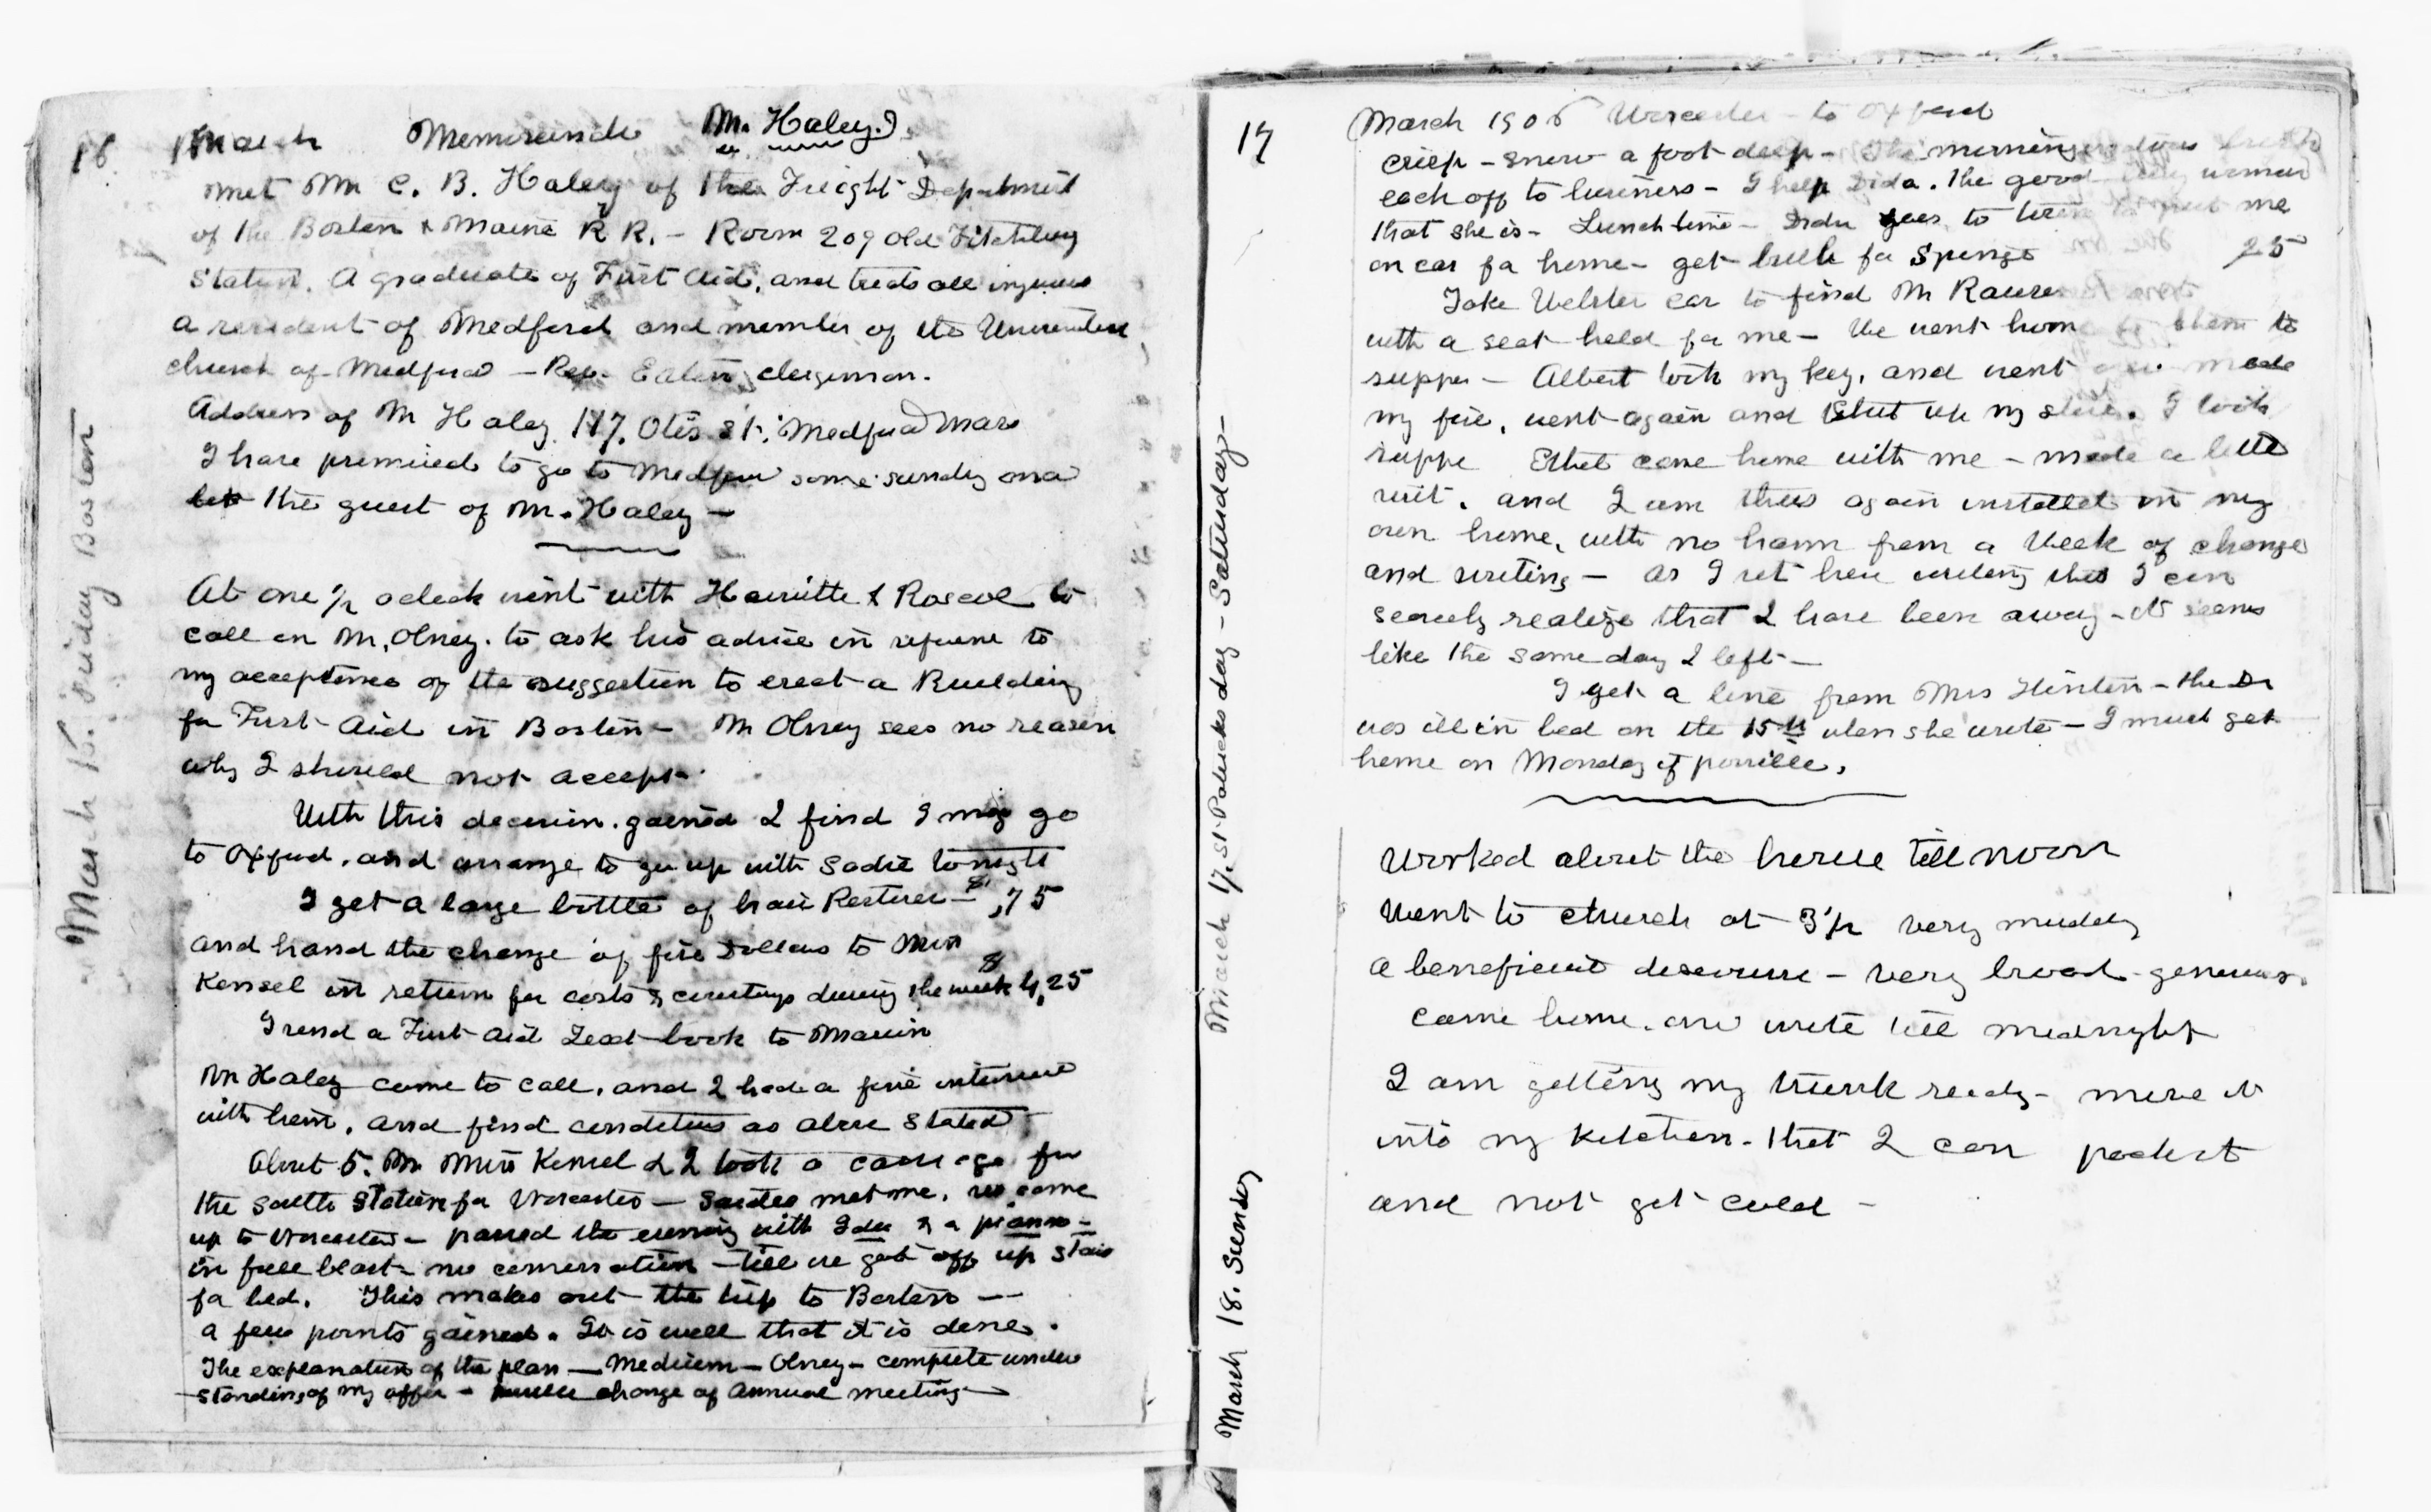 16 March Memoranda Mr. Haley
March 16. Friday Boston
Met Mr C. B. Haley of the Freight Department
of the Boston & Maine R R. – Room 209 Old Fitchburg
Station. A graduate of First Aid, and treats all injuries
a resident of Medford and member of the Universalist
church of Medford – Rev. Eaton clergyman.
Address of Mr Haley 117. Otis St. Medford Mass
I have promised to go to Medford some sunday and
be the guest of Mr. Haley –
At one ½ oclock went with Harriette & Roscoe to
call on Mr. Olney. to ask his advice in reference to
my acceptance of the suggestion to erect a Building
for First Aid in Boston – Mr Olney sees no reason
why I should not accept.
With this decision. gained I find I may go
to Oxford, and arrange to go up with Sadie tonight
I get a large bottle of hair Restorer – $ .75
and hand the change of five Dollars to Miss
Kensel in return for costs & courtesys during the week $ 4.25
I send a First Aid Text book to Marvin
Mr Haley came to call, and I had a fine interview
with him, and find conditions as above stated
About 5. Mr Miss Kensel & I took a carriage for
the South Station for Worcester – Saidee met me, we came
up to Worcester – passed the evening with Ida & a piano –
in full blast – no conversation – till we got off up stairs
for bed. This makes out the trip to Boston —
a few points gained. It is well that it is done.
The explanation of the plan — Medium – Olney – complete under
standing of my offer – change of annual meeting —
17 March 1906 Worcester – to Oxford
March 17. St. Patricks day – Saturday –
crisp – snow a foot deep – The morning
each off to business – I help Ida. the good woman
that she is – Lunch time – Ida goes to town to put me
on car for home – get bulb for Syringe 25
Take Webster car to find Mr Rauser
with a seat held for me – We went home to them to
supper – Albert took my key, and went and made
my fire, went again and shut up my stove. I took
supper Ethel came home with me – made a little
visit. and I am thus again installed in my
own home, with no harm from a Week of change
and writing – As I sit here writing this I can
scarcely realize that I have been away – It seems
like the same day I left –
I get a line from Mrs Hinton – the Dr
was ill in bed on the 15th when she wrote – I must get
home on Monday if possible.
March 18. Sunday
Worked about the house till noon
Went to church at 3½ very muddy
a beneficient discourse – very broad – generous.
Came home. and wrote till midnight
I am getting my trunk ready – move it
into my kitchen – that I can pack it
and not get cold –